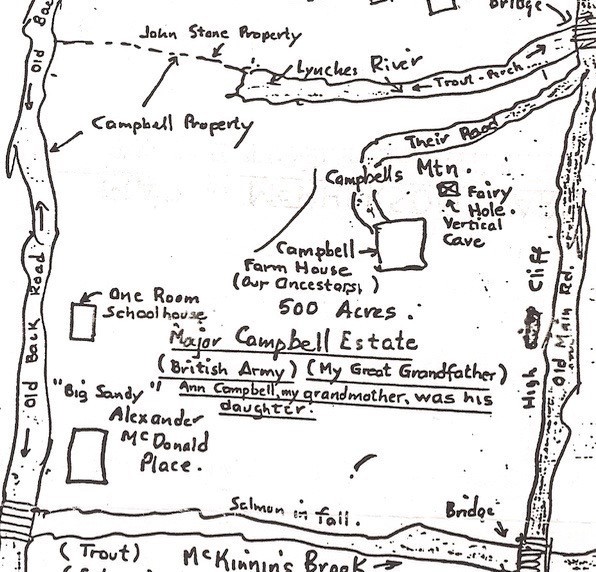 Bridge
Old Back
John Stone Property
Lynches River
Trout - Perch
Campbell Property
Their Road
Campbells Mtn.
Fairy
Hole.
Vertical
Cave
Campbell
Farm House
(Our Ancestors!)
500 Acres.
One Room
Schoolhouse
Major Campbell Estate
(British Army) (My Great Grandfather)
Ann Campbell, my grandmother, was his
daughter.
"Big Sandy"
Alexander
McDonald
Place.
Old Back Road
High Cliff
Old Main Rd.
Salmon in fall.
Bridge
(Trout)
McKinnin's Brook